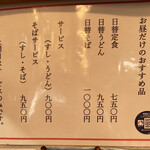 お昼だけのおすすめ品
日替定食　七五〇円
日替うどん　九五〇円
日替そば　一〇〇〇円
サービス
（すし・うどん）　九〇〇円
そばサービス
（すし・そば）　九五〇円